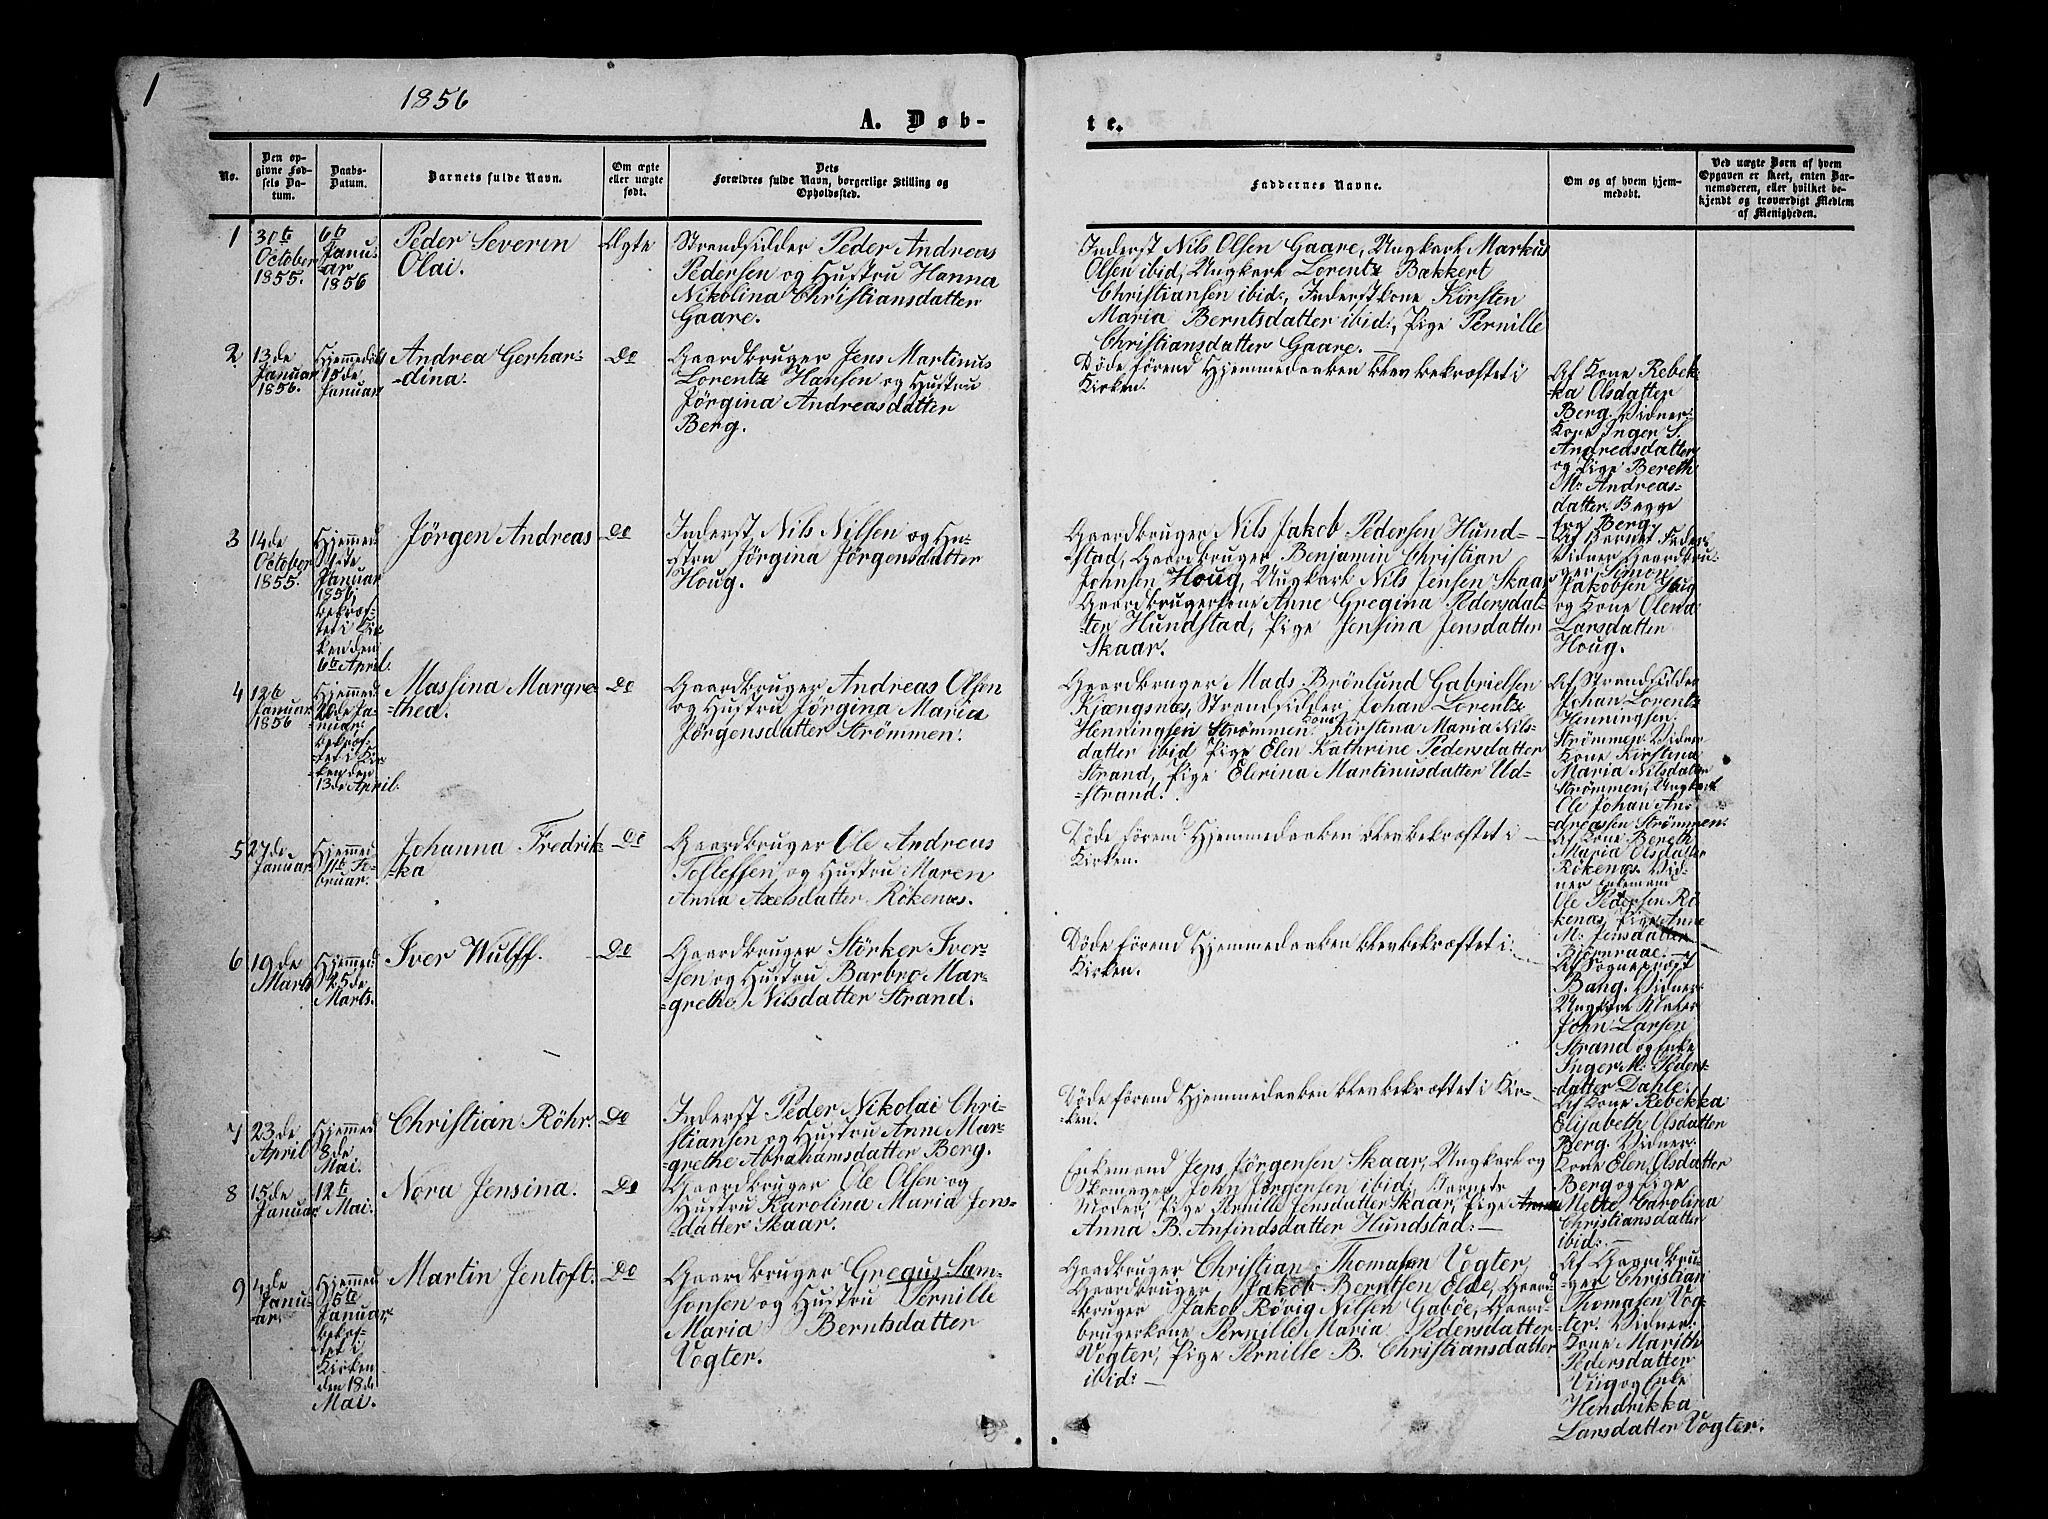 1
1856
A. Døb-
te.
No.
Den op-
givne Fød-
sels Da-
tum.
Daabs-
Datum.
Barnets fulde Navn.
Om ægte
eller uægte
født.
Dets
Forældres fulde Navn, borgerlige Stilling og
Opholdssted.
Faddernes Navne.
Om og af hvem hjem-
medøbt.
Ved uægte Børn af hvem
Opgaven er skeet, enten Bar-
nemoderen, eller hvilket be-
kjendt og troværdigt Medlem
af Menigheden.
1
30te
October
1855.
6te
Janu-
ar
1856
Peder Severin
Olai.
Ægte
Strandsidder Peder Andreas
Pedersen og Hustru Hanna
Nikolina Christiansdatter
Gaare.
Inderst Nils Olsen Gaare, Ungkarl Markus
Olsen ibid, Ungkarl Lorentz Bakkert
Christiansen ibid:, Inderstkone Kirsten
Maria Berntsdatter ibid:, Pige Pernille
Christiansdatter Gaare. —
2
13de
Januar
1856.
Hjemmedøbt
15de
Januar
Andrea Gerhar-
-dina.
Do
Gaardbruger Jens Martinus
Lorentz Hansen og Hustru
Jörgina Andreasdatter
Berg.
Døde förend Hjemmedaaben blev bekræftet i
Kirken.
Af Kone Rebek-
-ka Olsdatter
Berg. Vidner:
Kone Inger S.
Andreasdatter
og Pige Bereth
M: Andreas-
datter, Begge
fra Berg.
3
14de
October
1855.
Hjemmed
Januar
1856,
bekræf-
-tet i Kir
-ken den
6te April.
Jörgen Andreas
Do
Inderst Nils Nilsen og Hu-
-stru Jörgina Jörgensdatter
Houg.
Gaardbruger Nils Jakob Pedersen Hund-
-stad, Gaardbruger Benjamin Christian
Johnsen Houg, Ungkarl Nils Jensen Skaar
Gaardbrugerkone Anne Gregina Pedersdat-
-ter Hundstad, Pige Jensina Jensdatter
Skaar.
Af Barnets Fader
Vidner Gaardbru-
ger Simon
Jakobsen Houg
og Kone Olena
Larsdatter
Houg.
4
12te
Januar
1856
Hjemmed
20de Ja-
nuar.
bekræf-
-tet i Kir
-ken den
13de April.
Massina Margre-
-thea.
Do
Gaardbruger Andreas Olsen
og Hustru Jörgina Maria
Jörgensdatter Strömmen.
Gaardbruger Mads Brönlund Gabrielsen
Kjængsnæs, Strandsidder Johan Lorentz
Henningsen Strömmen, Kone Kirstina Maria Nils-
datter ibid Pige Elen Kathrine Pedersdatter
Strand, Pige Elerina Martinusdatter Ud-
-strand.
Af Strandsidder
Johan Lorentz
Henningsen
Strömmen. Vidner
Kone Kirstina
Maria Nilsdatter
Strömmen, Ungkarl
Ole Johan An-
dreassen Strömmen.
5
27de
Januar
Hjemmed
11te Fe-
bruar.
Johanna Fredrik-
-ka
Do
Gaardbruger Ole Andreas
Tollefsen og Hustru Maren
Anna Axelsdatter Rökenæs.
Døde förend Hjemmedaaben blev bekræftet i
Kirken.
Af Kone Bereth
Maria Olsdatter
Rökenæs. Vid-
ner Enkemand
Ole Pedersen Rö
kenæs, Pige Anne
M: Jensdatter
Björnraae. —
6
19de
Marts
Hjemmed
25de
Marts.
Iver Wulff.
Do
Gaardbruger Störker Iver-
-sen og Hustru Barbro Mar-
-grethe Nilsdatter Strand.
Døde förend Hjemmedaaben blev bekræftet i
Kirken.
Af Sognepræst
Bang. Vidner
John Larsen
Strand og Enke
Inger M: Peders-
-datter Dahle.
7
23de
April
Hjemmed
8de
Mai.
Christian Röhr.
Do
Inderst Peder Nikolai Chri-
stiansen og Hustru Anne Mar-
-grethe Abrahamsdatter Berg.
Døde förend Hjemmedaaben blev bekræftet i Kir-
-ken.
Af Kone Rebekka
Elisabeth Olsdatter
Berg. Vidner.
Kone Elen Olsdatter
Berg og Pige
Mette Carolina
Christiansdatter
ibid: —
8
15de
Januar
12te
Mai.
Nora Jensina.
Do
Gaardbruger Ole Olsen og
Hustru Karolina Maria Jens-
-datter Skaar.
Enkemand Jens Jörgensen Skaar, Ungkarl og
Skomager John Jörgensen ibid:, Barnets
Moder, Pige Pernille Jensdatter Skaar, Pige
Anna B. Anfindsdatter Hundstad: —
9
4de
Janu-
-ar.
Hjemmed
5te
Januar,
bekræf-
-tet i
Kirken
den 18de
Mai.
Martin Jentoft.
Do
Gaardbruger Gregus Sam-
sonsen og Hustru Pernille
Maria Berntsdatter
Vogter.
Gaardbruger Christian Thomasen Vogter,
Gaardbruger Jakob Berntsen Elde, Gaard-
bruger Jakob Rörig Nilsen Gaböe, Gaard-
brugerkone Pernille Maria Pedersdatter
Vogter, Pige Pernille B. Christiansdatter
ibid: —
Af Gaardbru-
-ger Christian
Thomasen Vog-
-ter. Vidner:
Kone Marith
Pedersdatter
Viig og Enke
Hendrikka
Larsdatter Vogter.